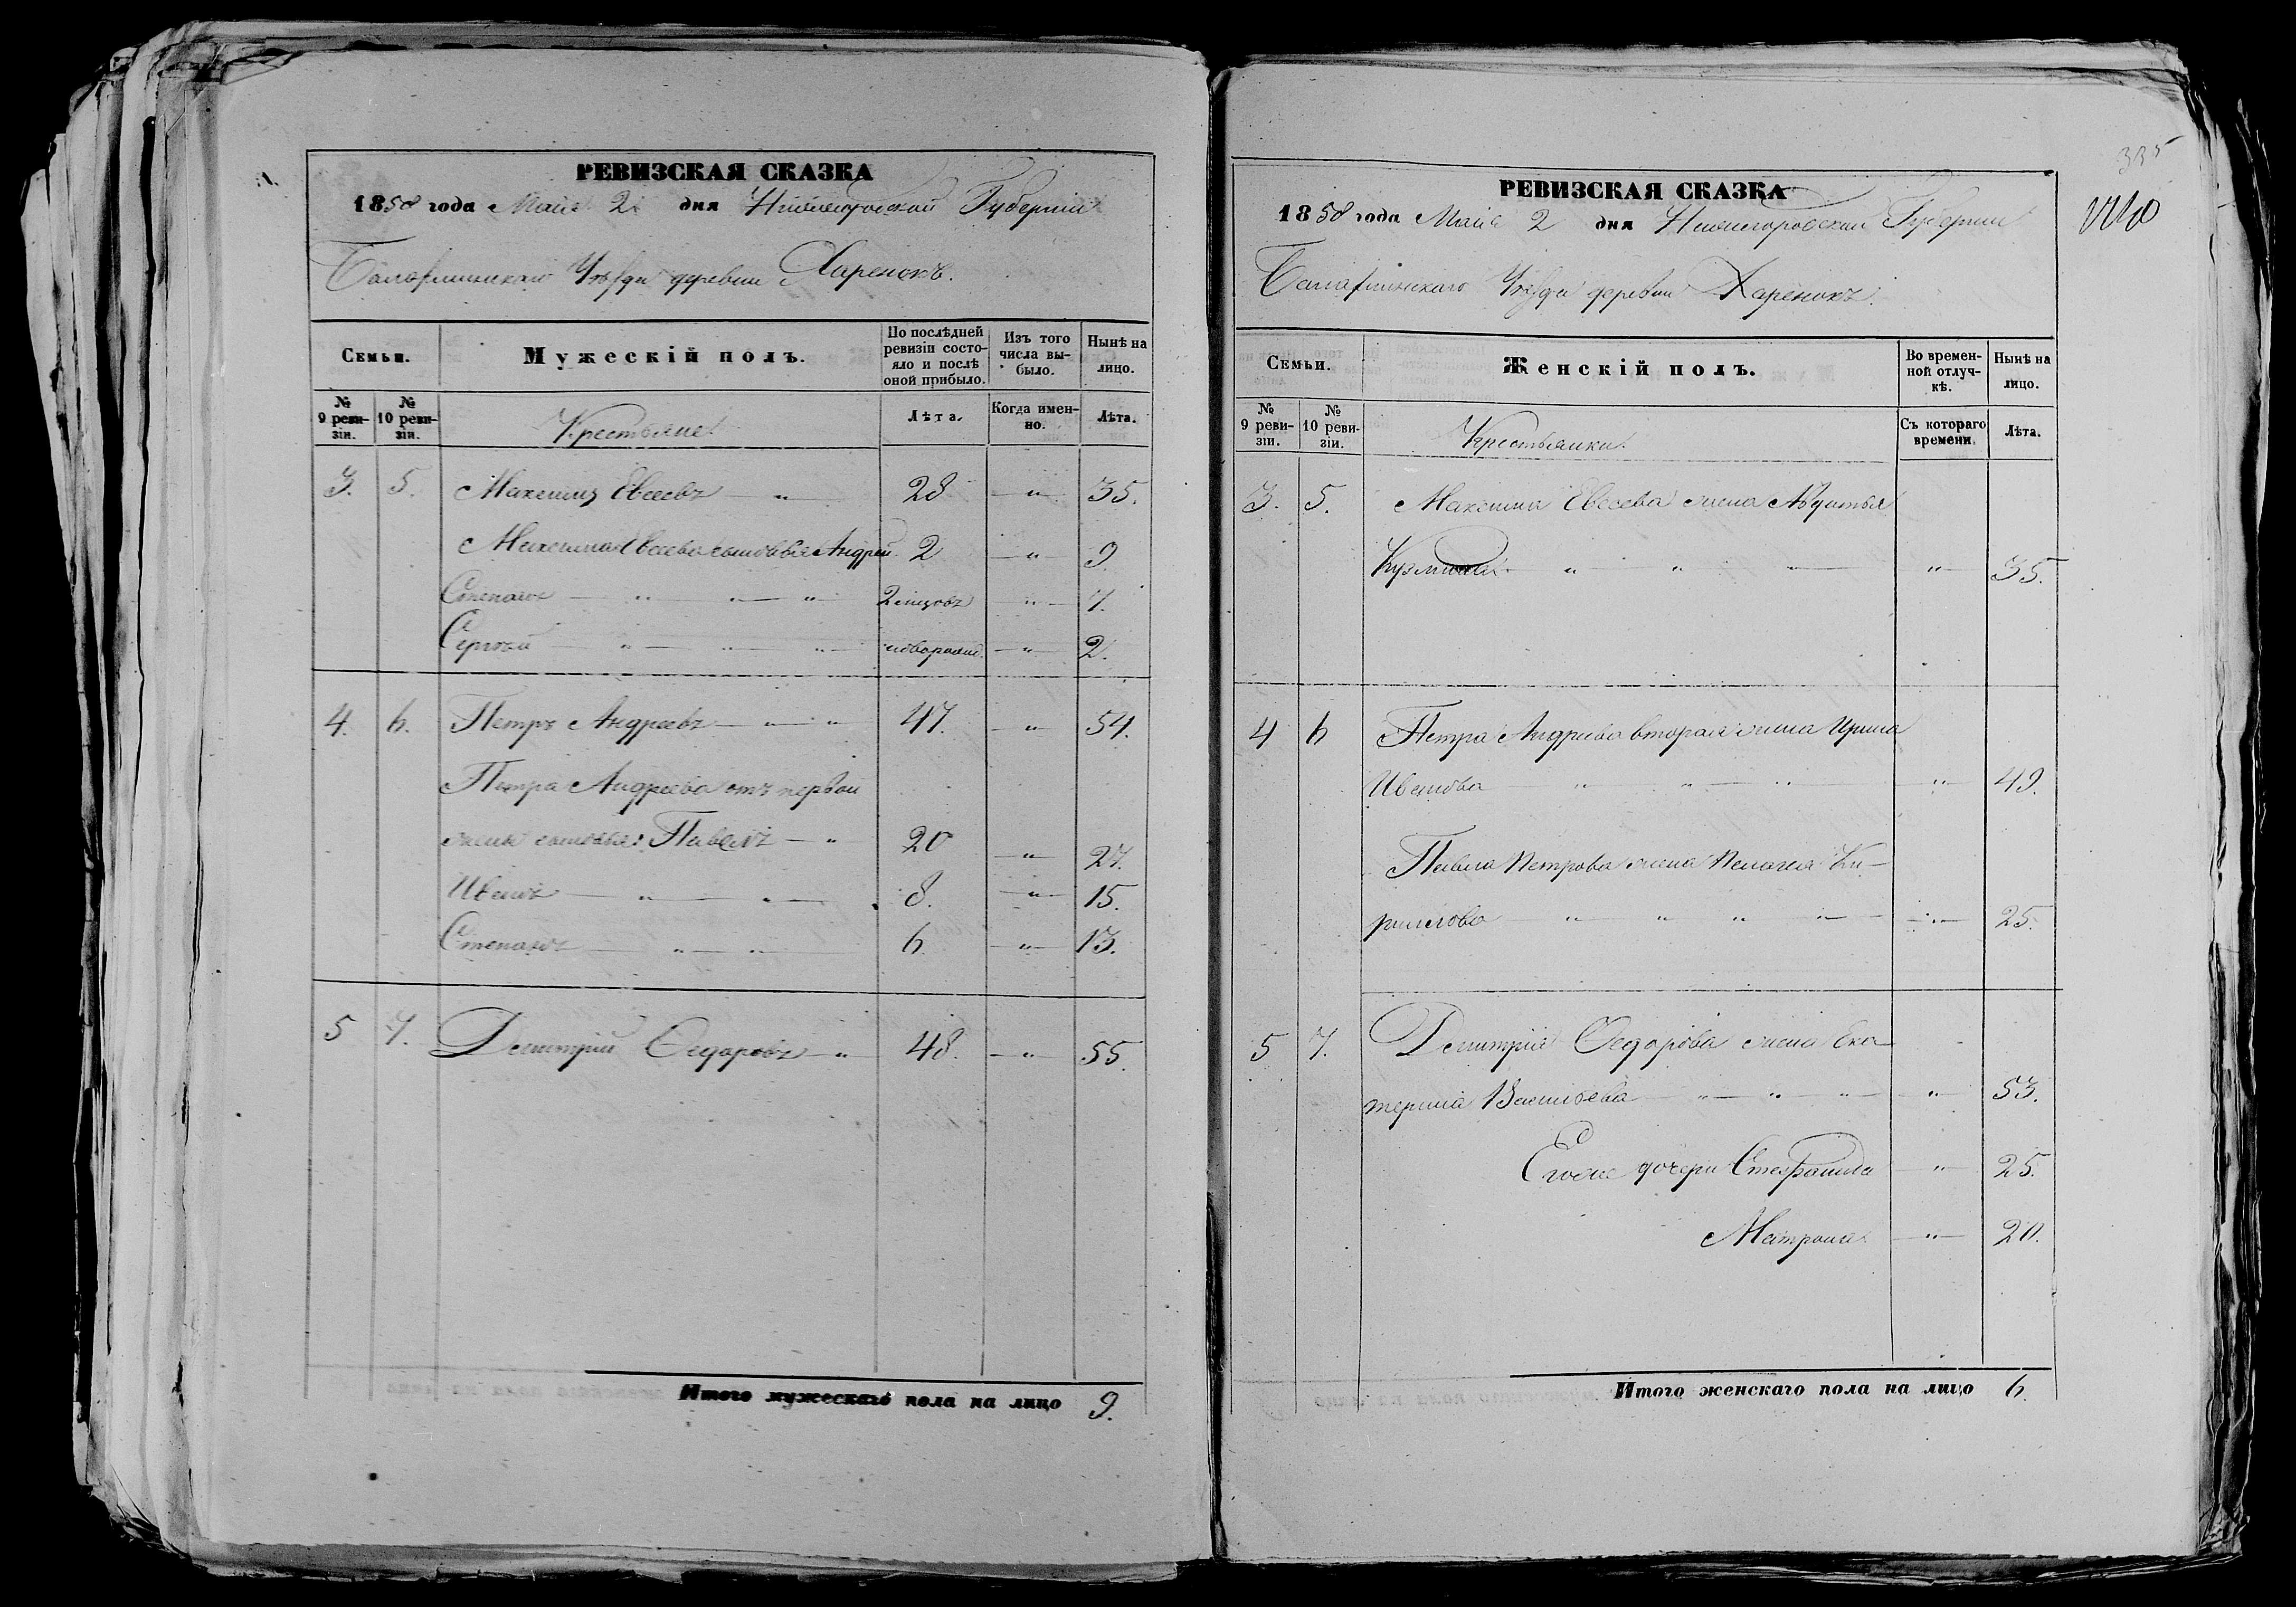 РЕВИЗСКАЯ СКАЗКА
1858 года Маія 2 дня Нижегородской Губерніи
Балахнинскаго Уѣзда деревни Харенокъ.
Семьи.
Мужескій полъ.
По послѣдней ревизіи состояло и послѣ оной прибыло.
Изъ того числа выбыло.
Нынѣ на лицо.
№ 9 ревизіи.
№ 10 ревизіи.
Крестьяне
Лѣта.
Когда именно.
Лѣта.
3. 5. Максимъ Евсеевъ — „ 28 — „ 35.
Максима Евсеева сыновья Андрей 2 — „ 9
Степанъ — „ — „ — „ 2 мѣсецовъ — „ 7.
Сергей — „ — „ — „ новорожд. — „ 2.
4. 6. Петръ Андреевъ — „ — „ 47. — „ 54.
Петра Андреева отъ первой
жены сыновья: Павелъ — „ 20 — „ 27.
Иванъ — „ — „ — 8. — „ 15.
Степанъ — „ — „ — 6 — „ 13.
5 7. Дмитрий Федоровъ — „ 48. — „ 55.
Итого мужескаго пола на лицо 9.
335
РЕВИЗСКАЯ СКАЗКА
1858 года Маія 2 дня Нижегородской Губерніи
Балахнинскаго Уѣзда деревни Харенокъ.
Семьи.
Женскій полъ.
Во временной отлучкѣ.
Нынѣ на лицо.
№ 9 ревизіи.
№ 10 ревизіи.
Крестьянки
Съ котораго времени.
Лѣта.
3. 5. Максима Евсеева жена Авдотья
Кузмина — „ „ „ — „ — 35.
4 6 Петра Андреева вторая жена Ирина
Иванова „ — „ — „ — „ — 49.
Павла Петрова жена Пелагея Ки-
рилова — „ — „ — „ — „ — „ — 25.
5 7. Дмитрия Федорова жена Ека-
терина Васильева — „ — „ — „ — „ — 53.
Егоже дочери Степанида — „ — 25.
Матрона — „ — 20.
Итого женскаго пола на лицо 6.